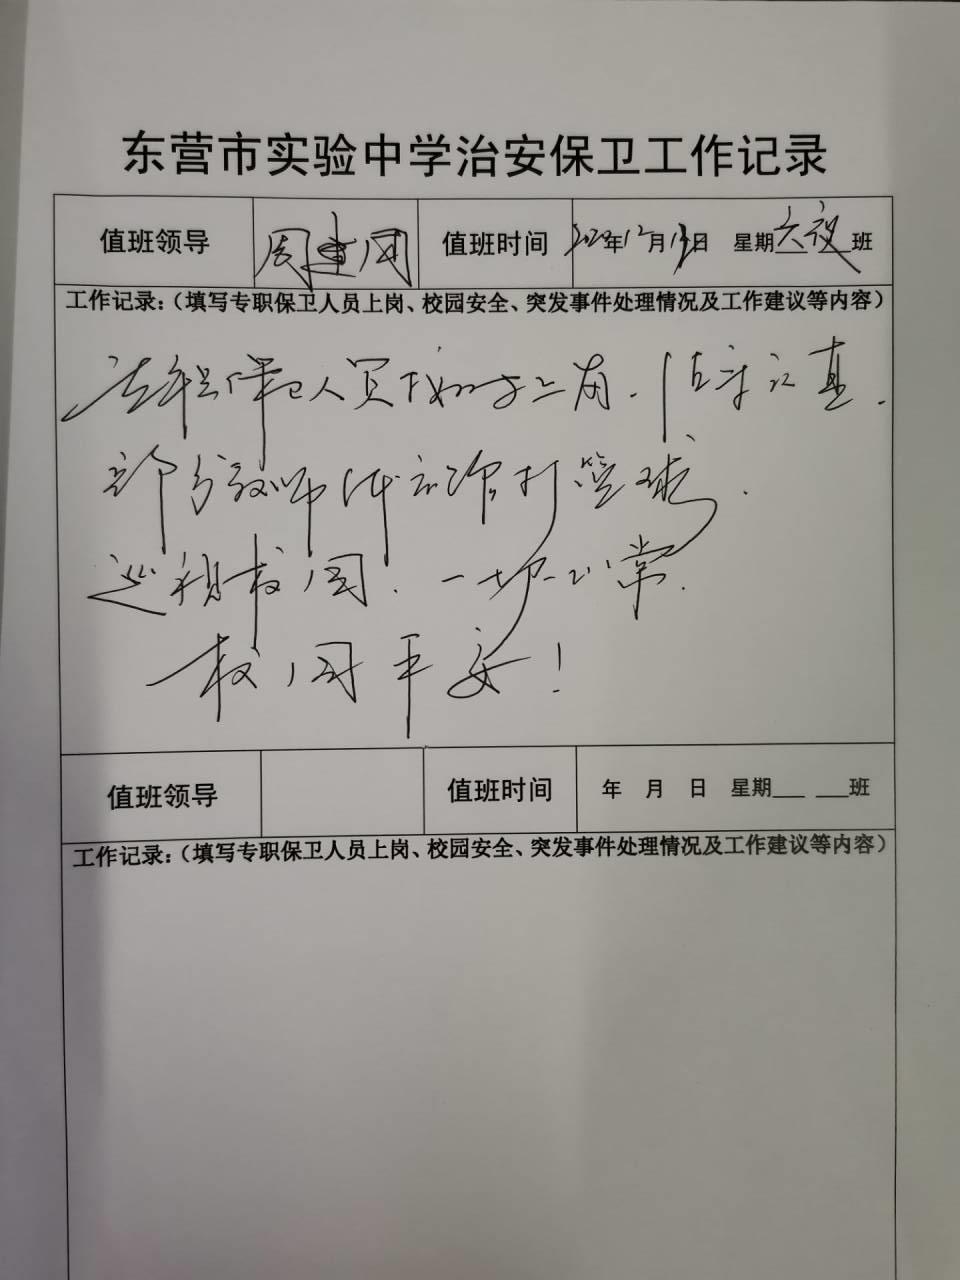 东营市实验中学治安保卫工作记录
值班领导 周建国 值班时间 年12月 日 星期六夜班
工作记录：（填写专职保卫人员上岗、校园安全、突发事件处理情况及工作建议等内容）
保卫人员 上岗.
部分教师 打篮球.
巡视校园. 一切正常.
校园平安！
值班领导 值班时间 年 月 日 星期___ ___班
工作记录：（填写专职保卫人员上岗、校园安全、突发事件处理情况及工作建议等内容）